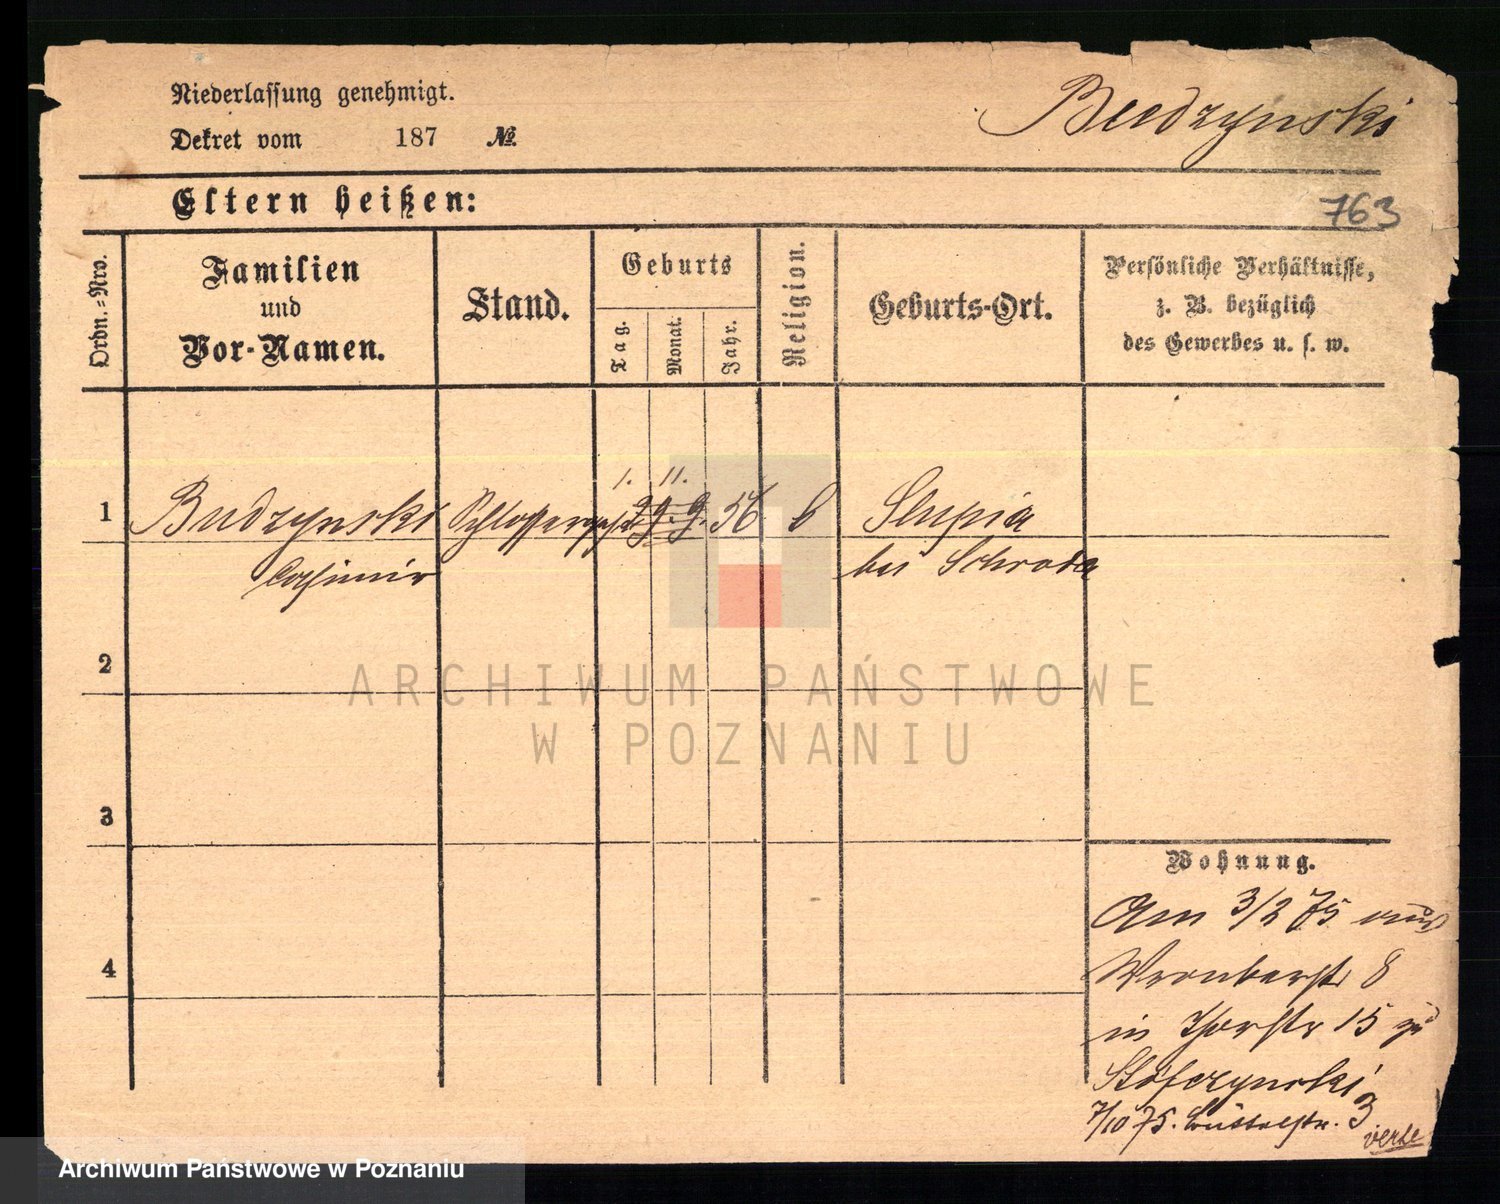 Niederlassung genehmigt.
Dekret vom 187 №
Budzynski
Eltern heißen:
763
Ordn.-Nro.
Familien und Vor-Namen.
Stand.
Geburts
Tag.
Monat.
Jahr.
Religion.
Geburts-Ort.
Persönliche Verhältnisse,
z. B. bezüglich
des Gewerbes u. s. w.
1. 11.
1 Budzynski Schlosserges. 29. 9. 56 Slupia
Casimir bei Schroda
2
ARCHIWUM PAŃSTWOWE
W POZNANIU
3
Wohnung.
Am 3/2 75 aus
4 Wronkerstr 8
in Thorstr 15 zu
7/10 75. 3
verte
Archiwum Państwowe w Poznaniu